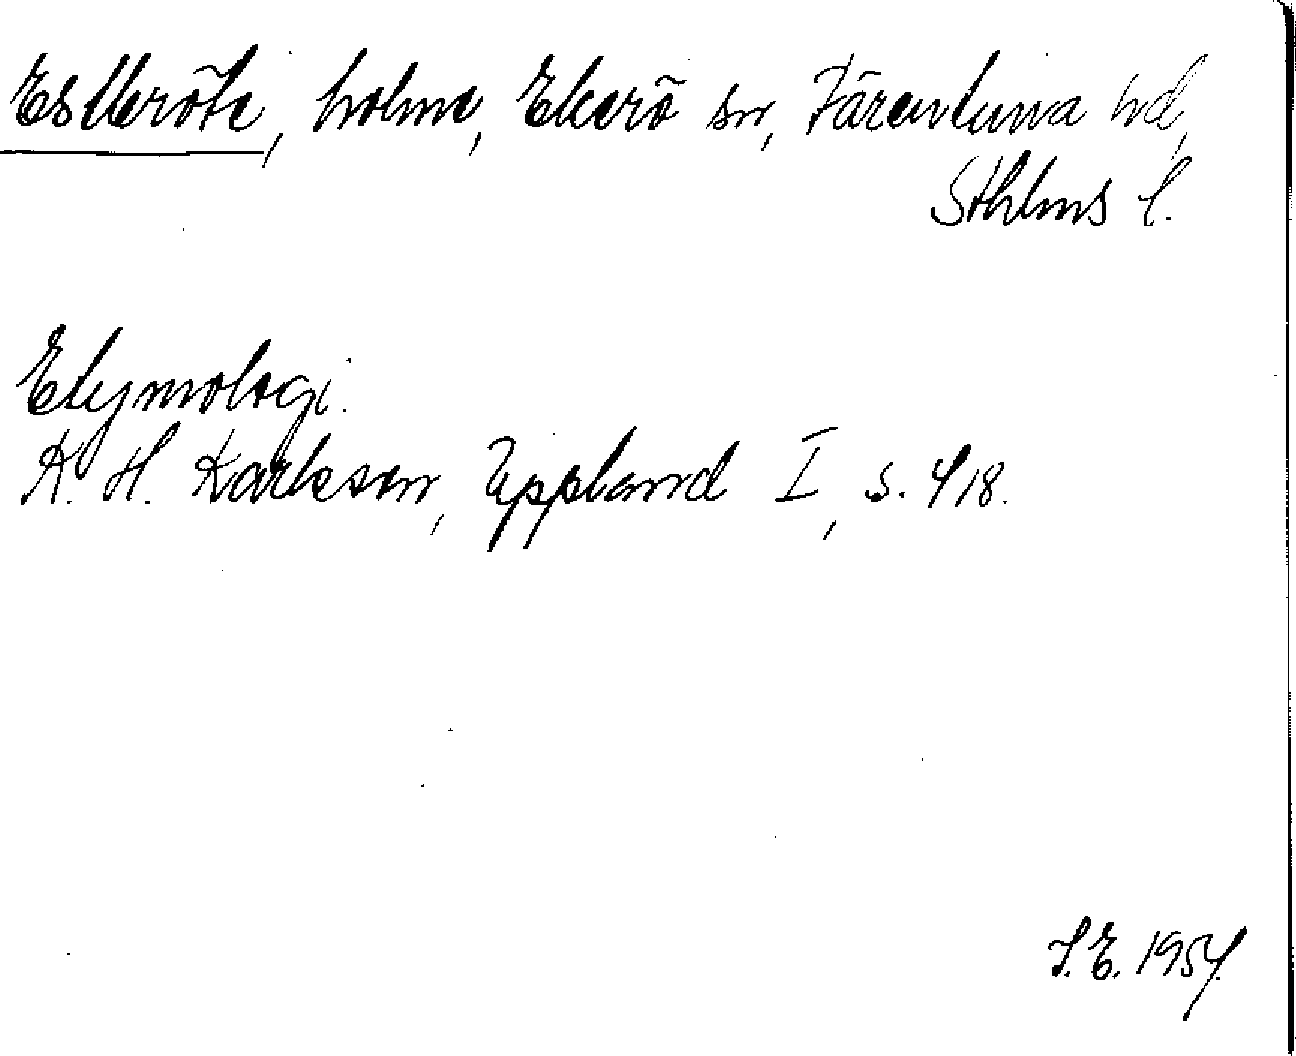 Estbröte, holme, Ekerö sn, Färentuna hd,
Sthlms l.
Etymologi.
K. H. Karlsson, Uppland I, s. 418.
J.E. 1954.